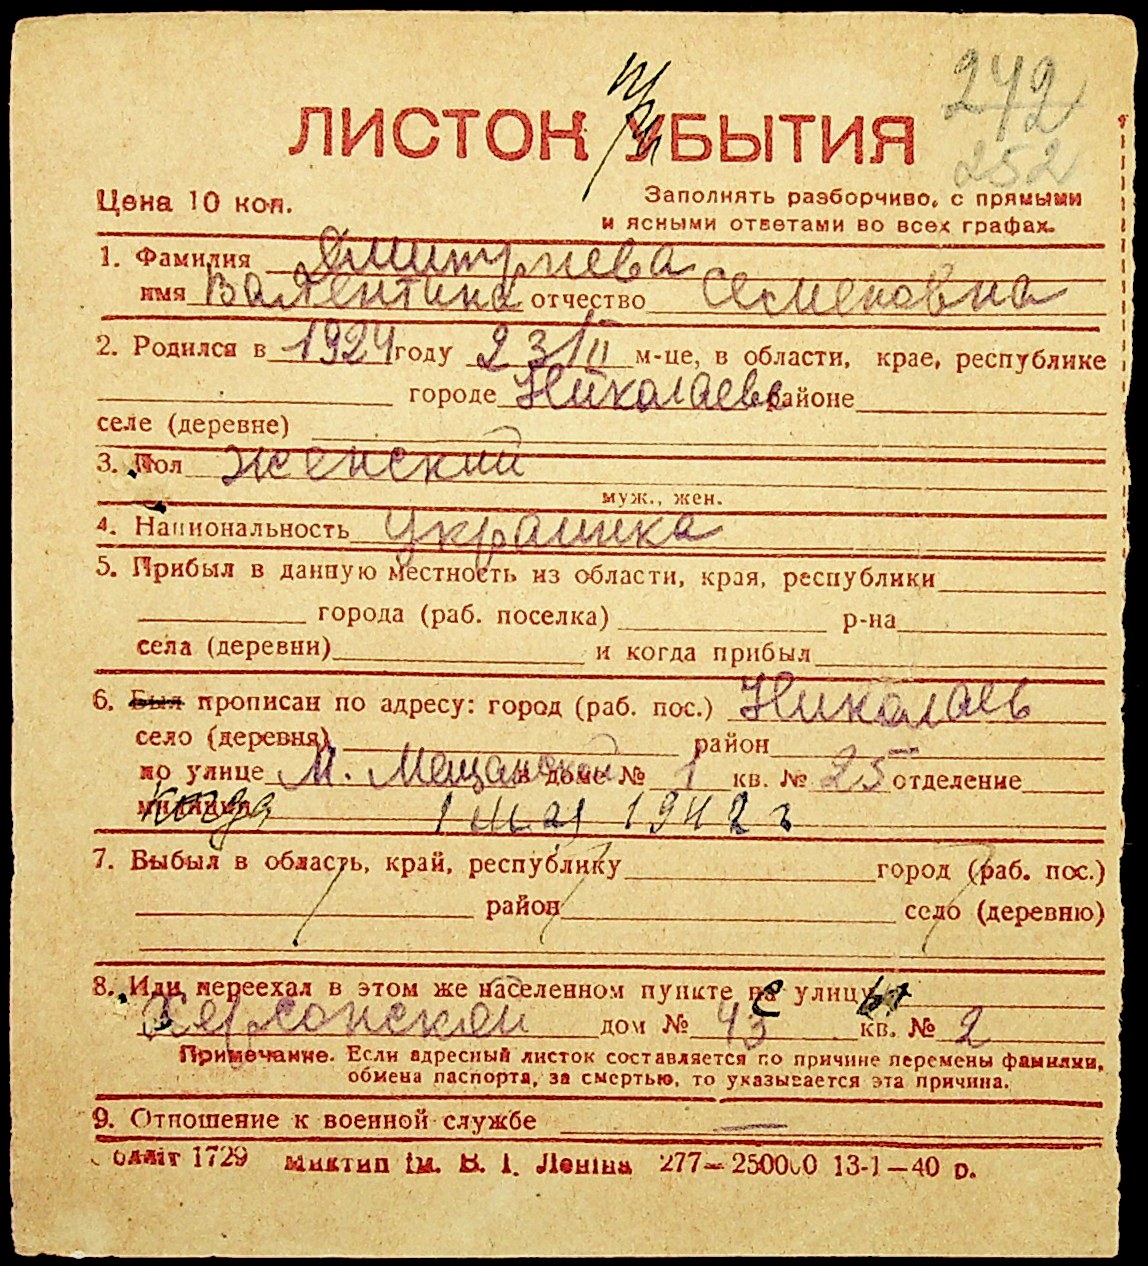 242
252
ЛИСТОК УБЫТИЯ
Цена 10 коп.
Заполнять разборчиво, с прямыми
и ясными ответами во всех графах.
1. Фамилия Дмитриева
имя Валентина отчество Семеновна
2. Родился в 1924 году 23/II м-це, в области, крае, республике
городе Николаеве районе
селе (деревне)
3. Пол женский
муж., жен.
4. Национальность украинка
5. Прибыл в данную местность из области, края, республики
города (раб. поселка) р-на
села (деревни) и когда прибыл
6. Был прописан по адресу: город (раб. пос.) Николаев
село (деревня) район
по улице М. Мещанской в доме № 1 кв. № 25 отделение
милиции когда 1 мая 1942 г
7. Выбыл в область, край, республику город (раб. пос.)
район село (деревню)
8. Или переехал в этом же населенном пункте на с улицу ы
Херсонской дом № 43 кв. № 2
Примечание. Если адресный листок составляется по причине перемены фамилии,
обмена паспорта, за смертью, то указывается эта причина.
9. Отношение к военной службе —
1729 ім. В. І. Леніна 277—250000 13-1—40 р.